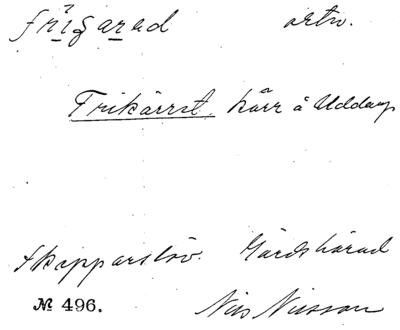 frigarad artv.
Frikärret, kärr å Uddarp
Skepparslöv. Gärds härad
№ 496. Nils Nilsson